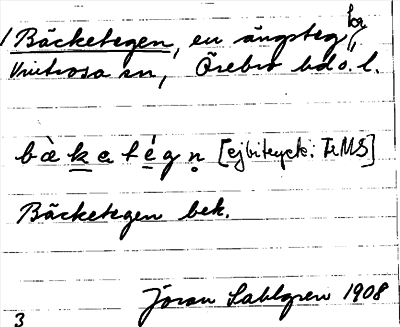 Bäcketegen, en ängsteg
Vintrosa sn, Örebro hd o. l.
bæ̀ketégn̥ [ej bitryck: IrMS]
Bäcketegen bek.
Jöran Sahlgren 1908
3